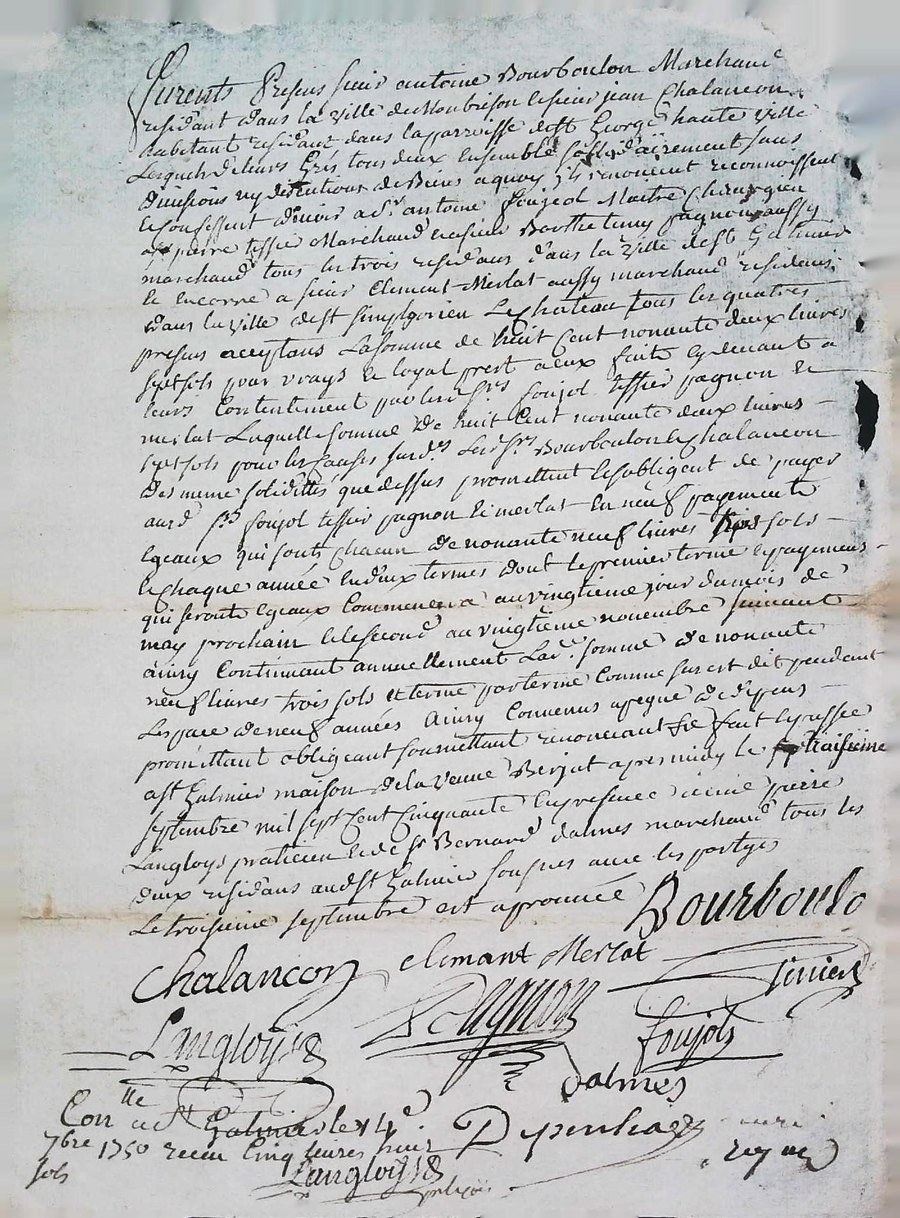 furents Presens sieur antoine Bourboulon Marchand
residant dans la ville de Monbrison le sieur jean Chalancon
habitant residant dans la parroisse de st George haute ville
Lesquels de leurs grés tous deux ensemble solidairement sans
divisions ny de Biens a quoy ils renoncent reconnoissent
et confessent devoir a Sr antoine foujol Maitre Chirurgien
pierre tissier Marchand et a sieur Barthelemy pagnon aussy
marchand tous les trois residans dans la ville de st Galmier
et encorre a sieur Clement Merlat aussy marchand residents
dans la ville de st simphorien Le chateau tous les quatres
presens acceptans La somme de huit Cent nonante deux livres
sept sols pour vrays et loyal prest a eux faite cy devant a
leurs Contentement par lesd Srs foujol tissier pagnon et
merlat Laquelle somme de huit Cent nonante deux livres
sept sols pour les causes susd.es Lesd. Srs Bourboulon et Chalancon
des meme solidittés que dessus promettent et sobligent de payer
ausd Srs foujol tissier pagnon et merlat en neuf payements
Egeaux qui sonts chacun de nonante neuf livres trois sols
et chaque année en deux termes dont le premier terme et payement
qui seronts egeaux Commencera au vingtieme jour du mois de
may prochain et le second au vingtieme novembre suivant
ainsy Continuant annuellement Lad. somme de nonante
neuf livres trois sols et terme par terme comme sus est dit pendant
Lespace de neuf années Ainsy Convenus a peyne de depens
promettant obligeant soumettant renonceant fté fait et passée
a st Galmier maison de la veuve Berjat apres midy le troisieme
septembre mil sept Cent Cinquante En presence de me pierre
Langloys praticien et de Sr Bernard dalmes marchand tous les
deux residans aud st Galmier soussignes avec les partyes
Le troisieme septembre est aprouvée Bourboulo
Chalancon clemant Merlat tissier
Langloys Pagnon foujols
dalmes
Conlle a st Galmier le 14e
7bre 1750 receu Cinq livres huit
sols Langloys